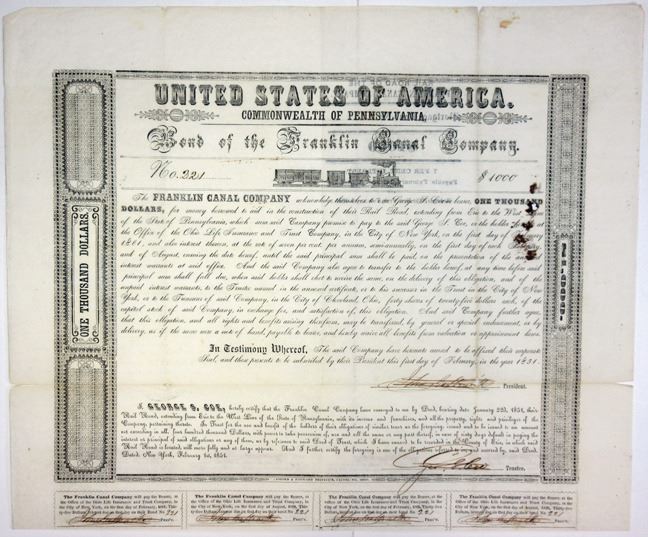 UNITED STATES OF AMERICA.
COMMONWEALTH OF PENNSYLVANIA.
Bond of the Franklin Canal Company.
No. 221
$1000
The FRANKLIN CANAL COMPANY acknowledge themselves to owe George S. Coe or bearer, ONE THOUSAND
DOLLARS, for money borrowed to aid in the construction of their Rail Road, extending from Erie to the West Line
of the State of Pennsylvania, which sum said Company promise to pay to the said George S. Coe, or the holder hereof at
the Office of the Ohio Life Insurance and Trust Company, in the City of New York, on the first day of February
1861, and also interest thereon, at the rate of seven per cent. per annum, semi-annually, on the first day of each February
and of August, ensuing the date hereof, until the said principal sum shall be paid, on the presentation of the annexed
interest warrants at said office. And the said Company also agree to transfer to the holder hereof, at any time before said
principal sum shall fall due, when said holder shall elect to receive the same, on the delivery of this obligation, and of the
unpaid interest warrants, to the Trustee named in the annexed certificate, or to his successor in the Trust in the City of New
York, or to the Treasurer of said Company, in the City of Cleveland, Ohio, forty shares of twenty-five dollars each, of the
capital stock of said Company, in exchange for, and satisfaction of, this obligation. And said Company further agree,
that this obligation, and all rights and benefits arising therefrom, may be transferred, by general or special endorsement, or by
delivery, as if the same was a note of hand, payable to bearer, and hereby waive all benefits from valuation or appraisement laws.
In Testimony Whereof, The said Company have hereunto caused to be affixed their corporate
Seal, and these presents to be subscribed by their President this first day of February, in the year 1851.
President.
I, GEORGE S. COE, hereby certify that the Franklin Canal Company have conveyed to me by Deed, bearing date January 22d, 1851, their
Rail Road, extending from Erie to the West Line of the State of Pennsylvania, with its income and franchises, and all the property, rights and privileges of the
Company, pertaining thereto. In Trust for the use and benefit of the holders of their obligations of similar tenor as the foregoing; issued and to be issued to an amount
not exceeding in all, four hundred thousand Dollars, with power to take possession of, use and sell the same or any part thereof, in case of sixty days default in paying the
interest or principal of said obligations or any of them, as by reference to said Deed of Trust, which I have caused to be recorded in the County of Erie, in which said
Rail Road is located, will more fully and at large appear. And I further certify the foregoing is one of the obligations referred to in, and secured by, said Deed.
Dated, New York, February 1st, 1851.
Geo. S. Coe
Trustee.
ONE THOUSAND DOLLARS.
The Franklin Canal Company will pay the Bearer, at
the Office of the Ohio Life Insurance and Trust Company, in
the City of New York, on the first day of February,
Thirty-five Dollars, interest due on that day on their Bond No. 221
Pres't.
The Franklin Canal Company will pay the Bearer, at
the Office of the Ohio Life Insurance and Trust Company, in
the City of New York, on the first day of August,
Thirty-five Dollars, interest due on that day on their Bond No. 221
Pres't.
The Franklin Canal Company will pay the Bearer, at
the Office of the Ohio Life Insurance and Trust Company, in
the City of New York, on the first day of August,
Thirty-five Dollars, interest due on that day on their Bond No. 221
Pres't.
The Franklin Canal Company will pay the Bearer, at
the Office of the Ohio Life Insurance and Trust Company, in
the City of New York, on the first day of February,
Thirty-five Dollars, interest due on that day on their Bond No. 221
Pres't.